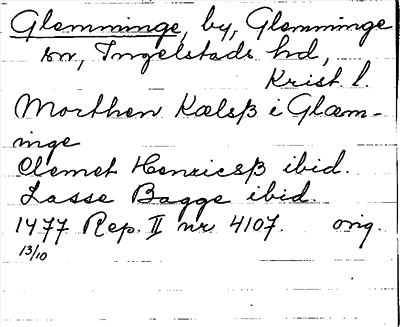 Glemminge, by, Glemminge
sn, Ingelstads hd,
Krist. l.
Morthen Kælsß i Glæm-
inge
Clemet Henricsß ibid.
Lasse Bagge ibid.
1477 Rep. II nr 4107. orig.
13/10